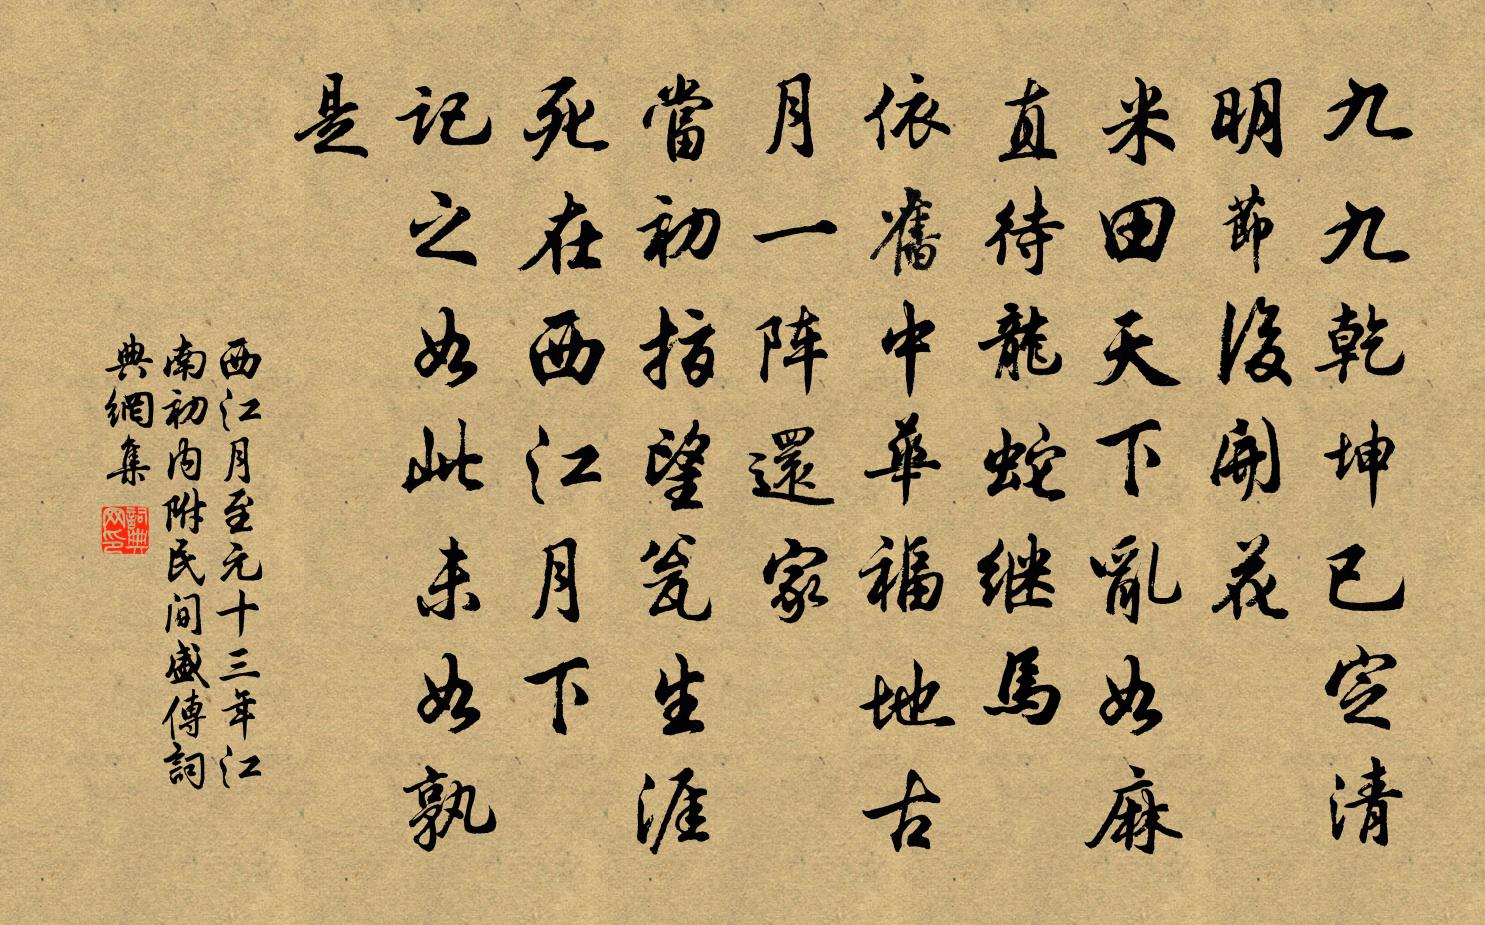 九九乾坤已定清
明節後開花
米田天下亂如麻
直待龍蛇继馬
依舊中華福地古
月一阵還家
當初指望瓮生涯
死在西江月下
記之如此未如孰
是
西江月至元十三年江
南初内附民间盛傳詞
典網集
詞典
网印